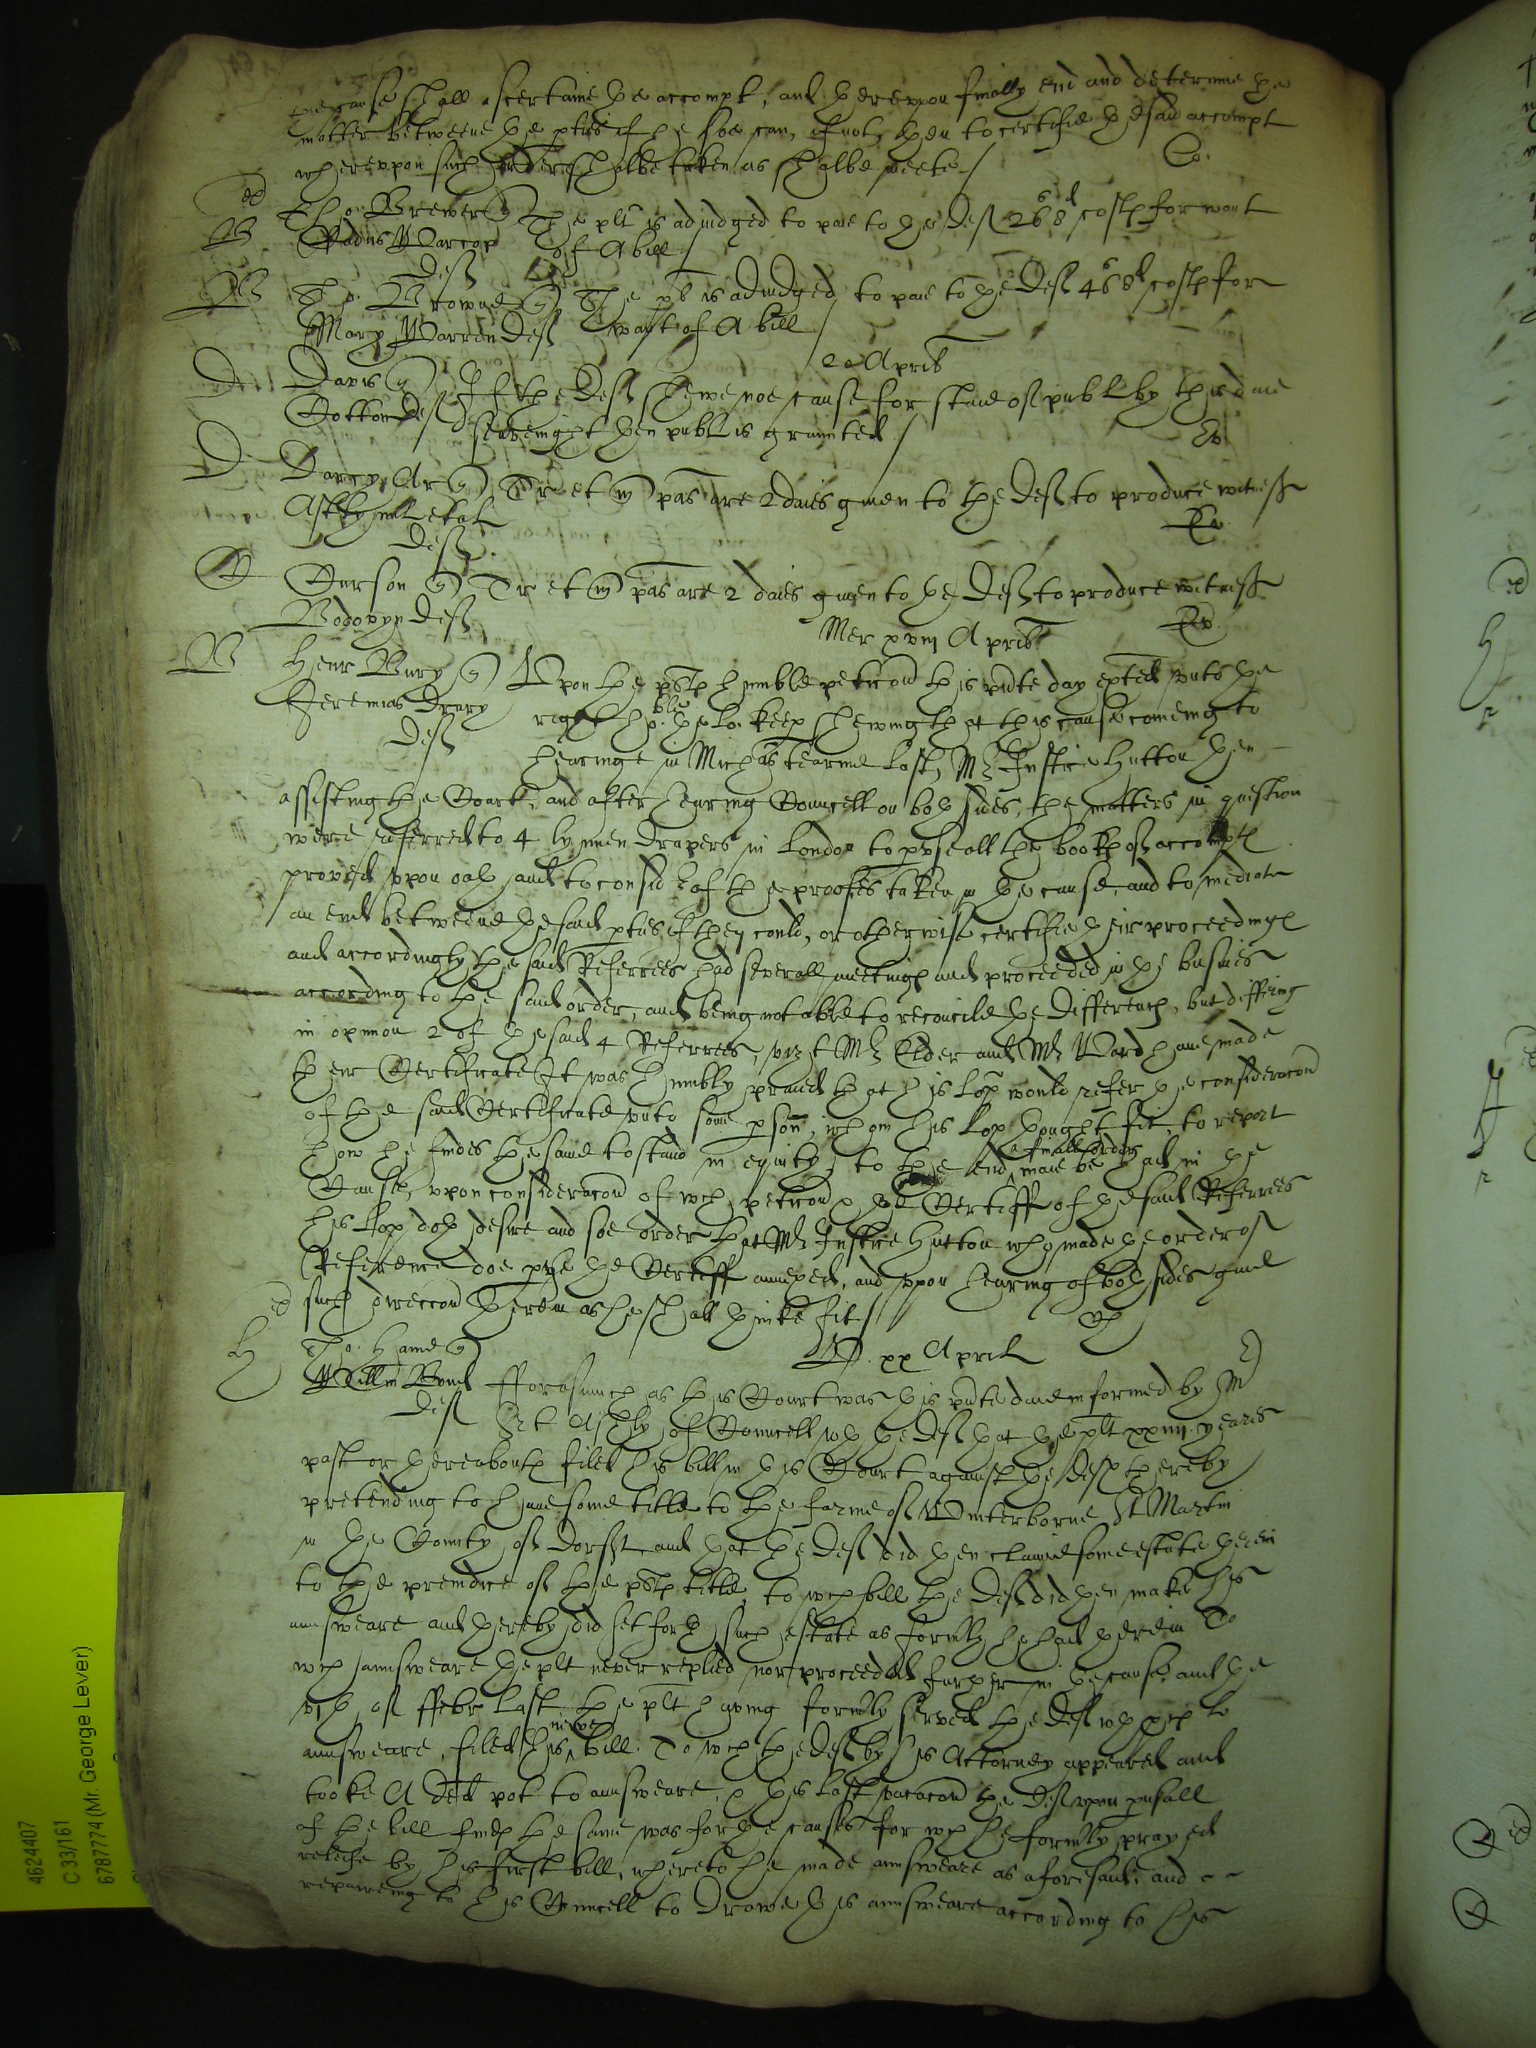 the cause shall ascertaine the accompt, and therevpon finally end and determine the
matter betweene the pties if he soe can, if not, then to certifie the said accompt
wherevpon such order shalbe taken as shalbe meete /
Tho: Brewer The plt is adiudged to paie to the Deft 26s 8d costs for want
of A bill /
Deft
Tho. Browne The plt is adiudged to paie to the Deft 46s 8d costs for
Mary Warren Deft want of A bill /
20 April
Davis If the Deft shewe noe cause for staie of publ by this daie
Cotton Deft then publ is graunted /
Darcy Ar pas are 2 daies given to the Deft to produce witness
Deft
Curson pas are 2 daies given to the Deft to produce witness
Bodovyn Deft
Mer xviij April
Henr Bury Vpon the plts humble peticon this pnte day exted vnto the
Jeremias Drury right hoble the Lo. keep shewing that this cause comeing to
Deft
hearinge in Michas tearme last, Mr Justice Hutton then
assisting the Court, and after hearing Councell on both sides, the matters in question
were referred to 4 lynnen drapers in London to pvse all the books of accompts
proved vpon oath and to consid of the proofes taken in the cause, and to mediate
an end betweene the said pties if they could, or otherwise certifie their proceedings
and accordingly the said Referrees had severall meetings and proceeded in the busines
according to the said order, and being not able to reconcile the differences, but differing
in opinion 2 of the said 4 Referrees, vizt Mr Elder and Mr Ward have made
their Certificate It was humbly praied that his Lop would refer the consideracon
of the said Certificate vnto some pson, whom his Lop thought fit, to report
how he findes the same to stand in equity, to the end a finall order maie be had in the
Cause, vpon consideracon of wch peticon & the Certiff of the said Referrees
his Lop doth desire and soe order that Mr Justice Hutton who made the order of
Reference doe pvse the Certiff annexed, and vpon hearing of both sides give
such direccon therein as he shall thinke fit /
Tho: Hame
xx April
Willm Bond fforasmuch as this Court was this pnte daie informed by Mr
Deft
Ashly of Councell wth the Deft that the plt xxiiij yeares
past or thereabouts filed his bill in this Court against the Deft thereby
pretending to have some title to the farme of Winterborne St Martin
in the County of Dorst and that the Deft did then claime some estate therein
to the preiudice of the plts title, to wch bill the Deft did then make his
answeare and thereby did set forth such estate as formly he had therein To
wch answeare the plt never replied nor proceeded further in the cause, and the
of ffebr last the plt having formly served the Deft wth pces to
answeare, filed this newe bill. To wch the Deft by his Attorney appeared and
tooke A Ded pot to answeare, & this last vacacon the Deft vpon pusall
of the bill finds the same was for the causes for wch he formly prayed
releife by his first bill, whereto he made answeare as aforesaid. and
repaireing to his Councell to drawe his answeare according to his
4624407
C 33/161
6787774 (Mr. George Lever)